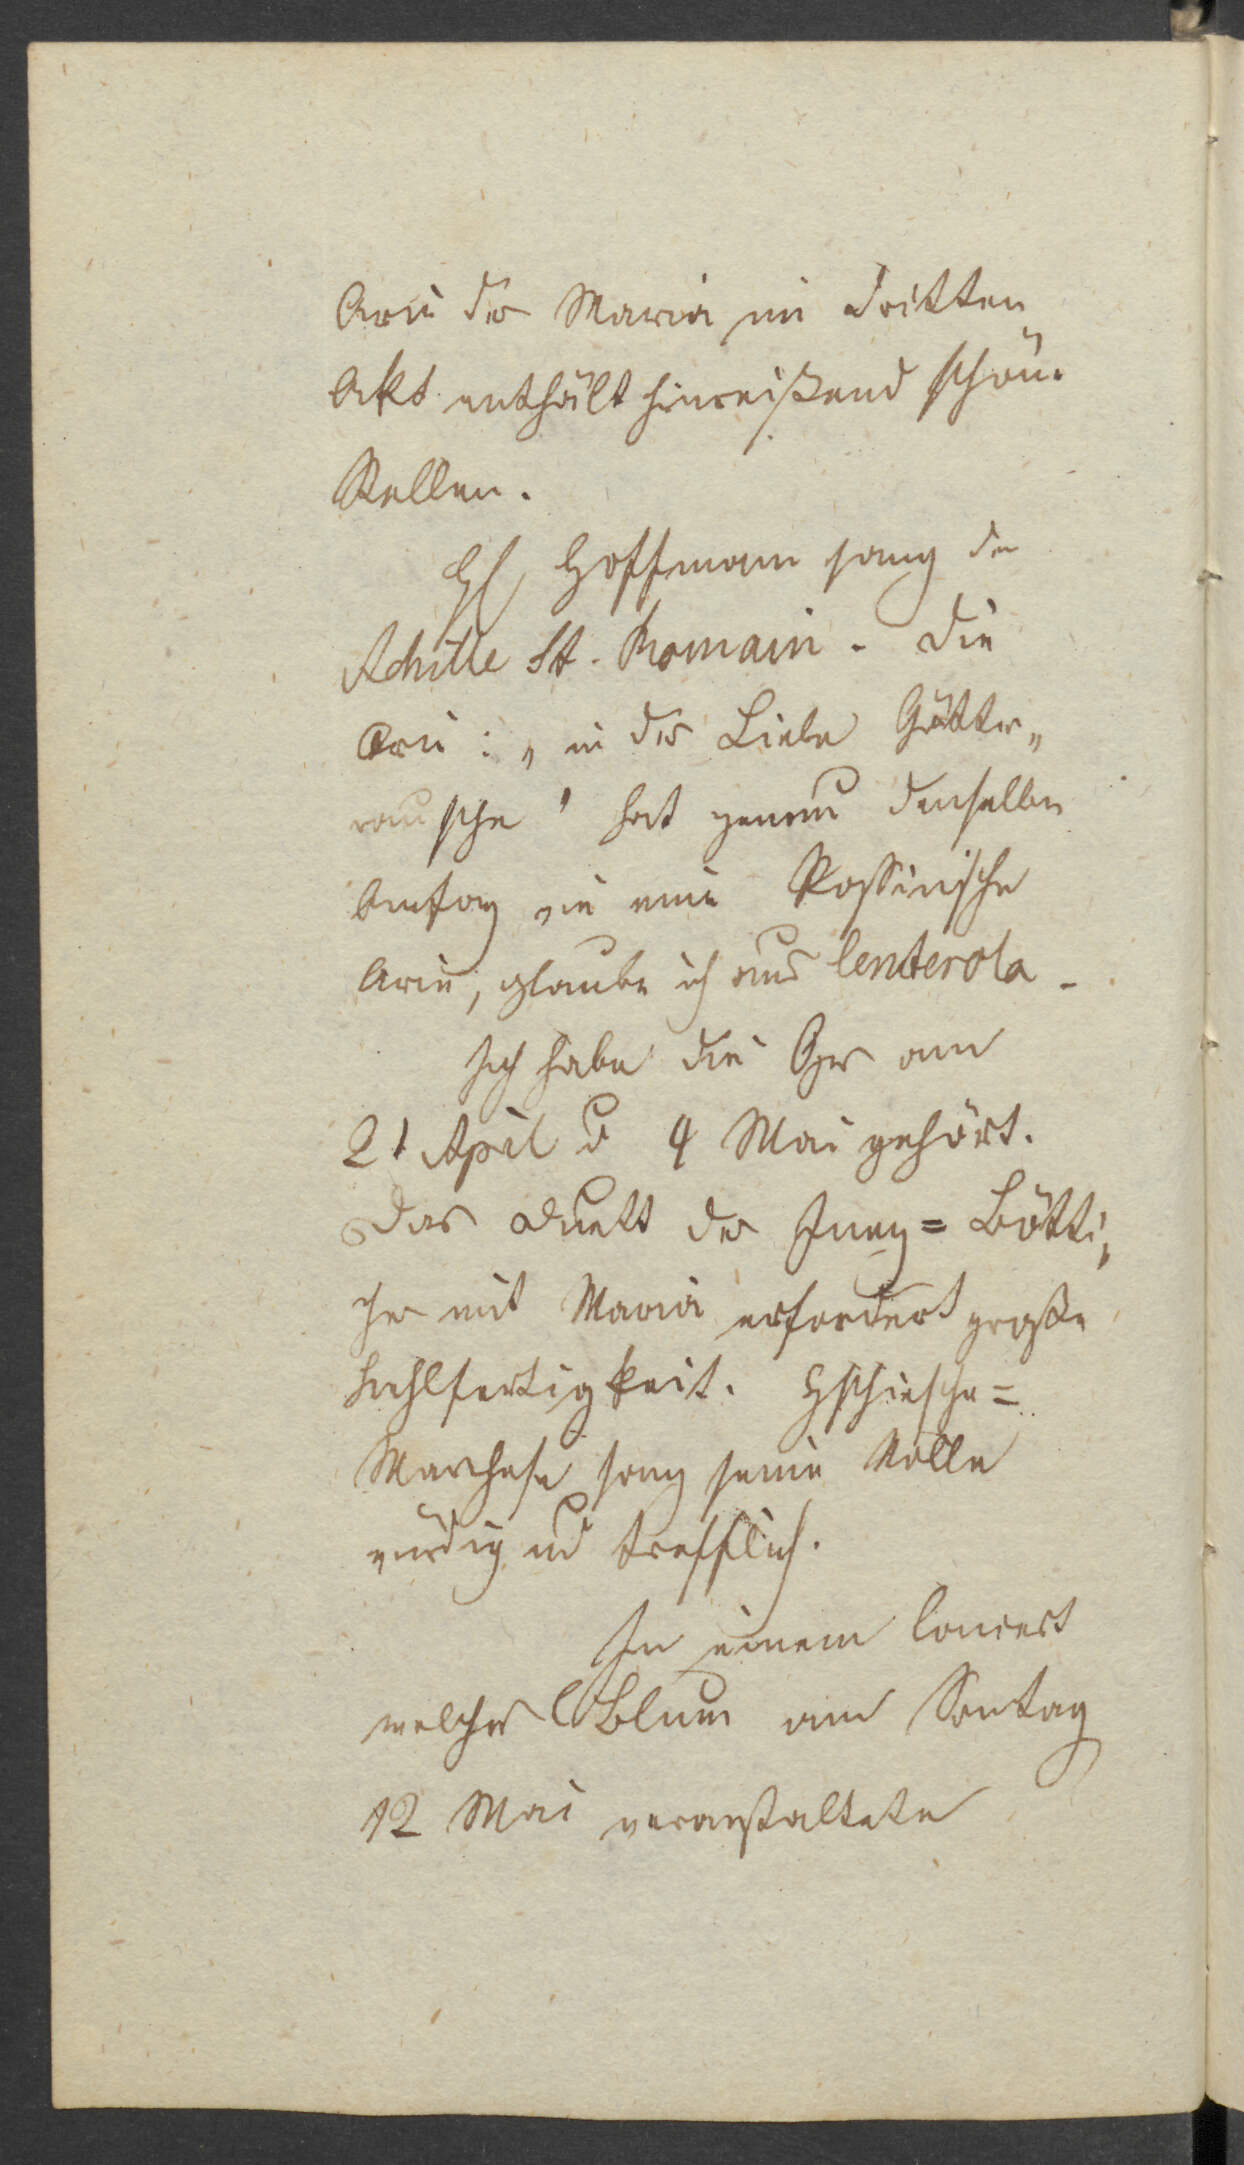 Arie der Maria im dritten
Akt enthält hinreißend schöne
Stellen.
H Hoffmann sang den
Achille St. Romain. Die
Arie: „in der Liebe Götter„
rausche" hat genau denselben
Anfang wie eine Rossinische
Arie, glaube ich aus Centerola.
Ich habe die Oper am
21 April u 4 Mai gehört.
Das Duett der Inez = Bötti„
cher mit Maria erfordert große
Kehlfertigkeit. Zschiesche =
Marchese sang seine Rolle
würdig und trefflich.
In einem Concert
welches C Blum am Sontag
12 Mai veranstaltete